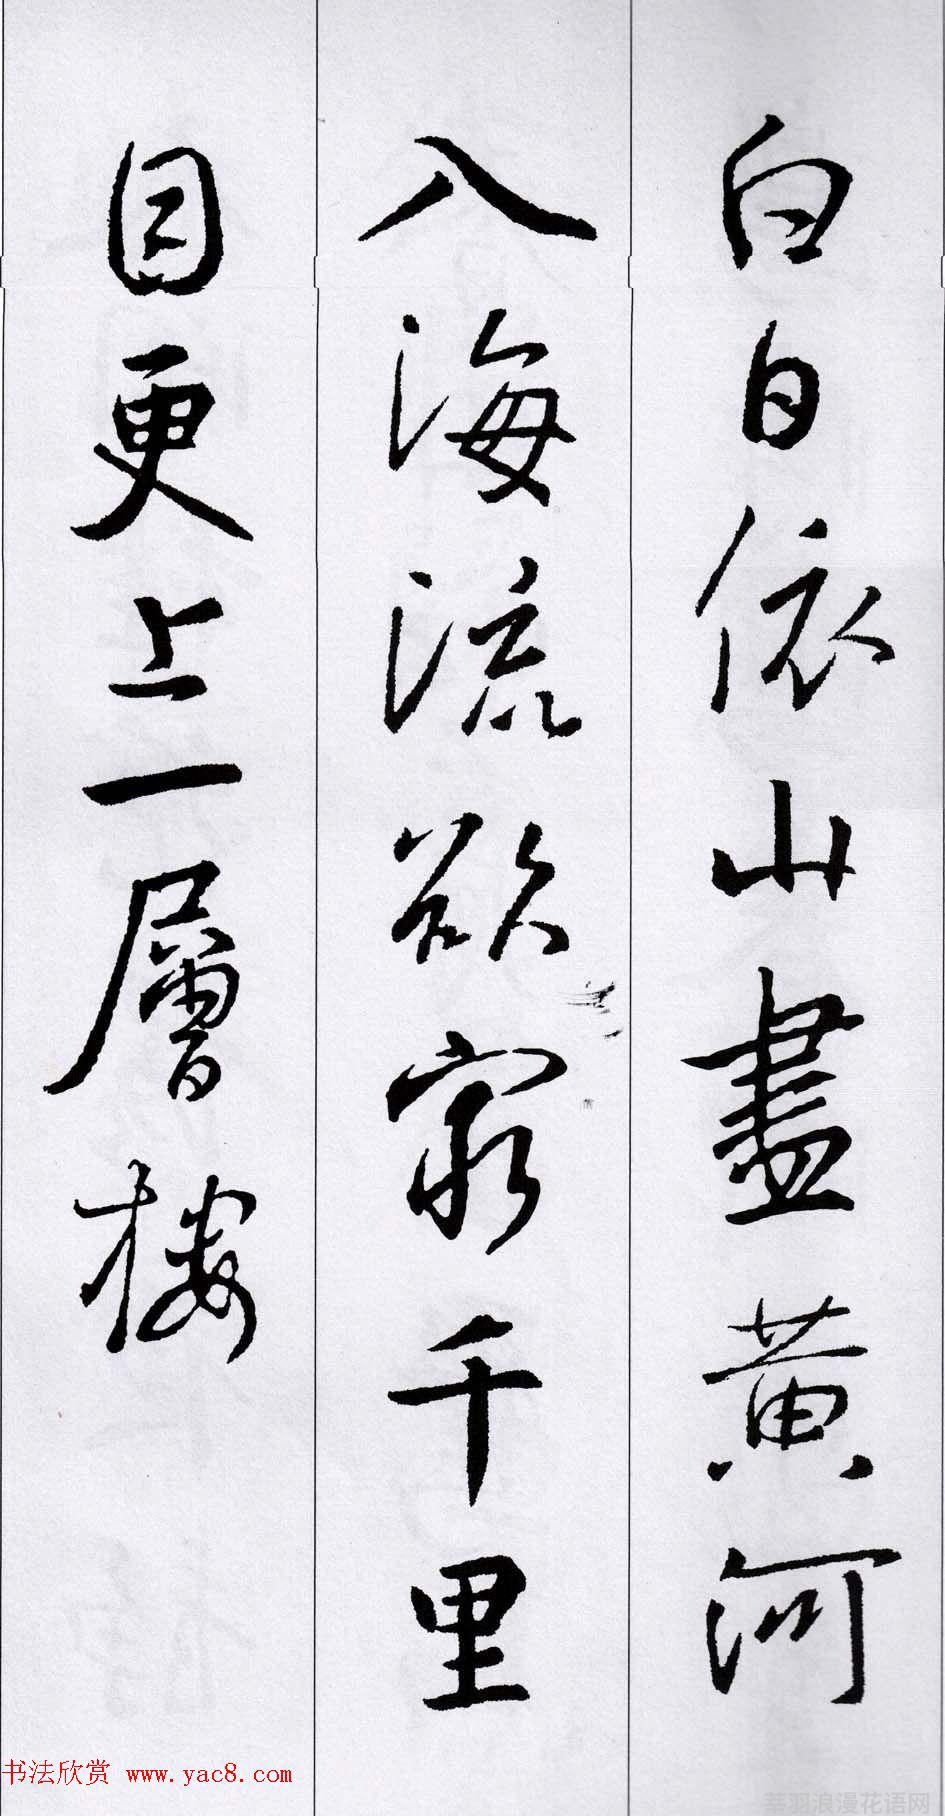 白日依山盡黃河
入海流欲窮千里
目更上一層樓
书法欣赏 www.yac8.com
芊羽浪漫花语网